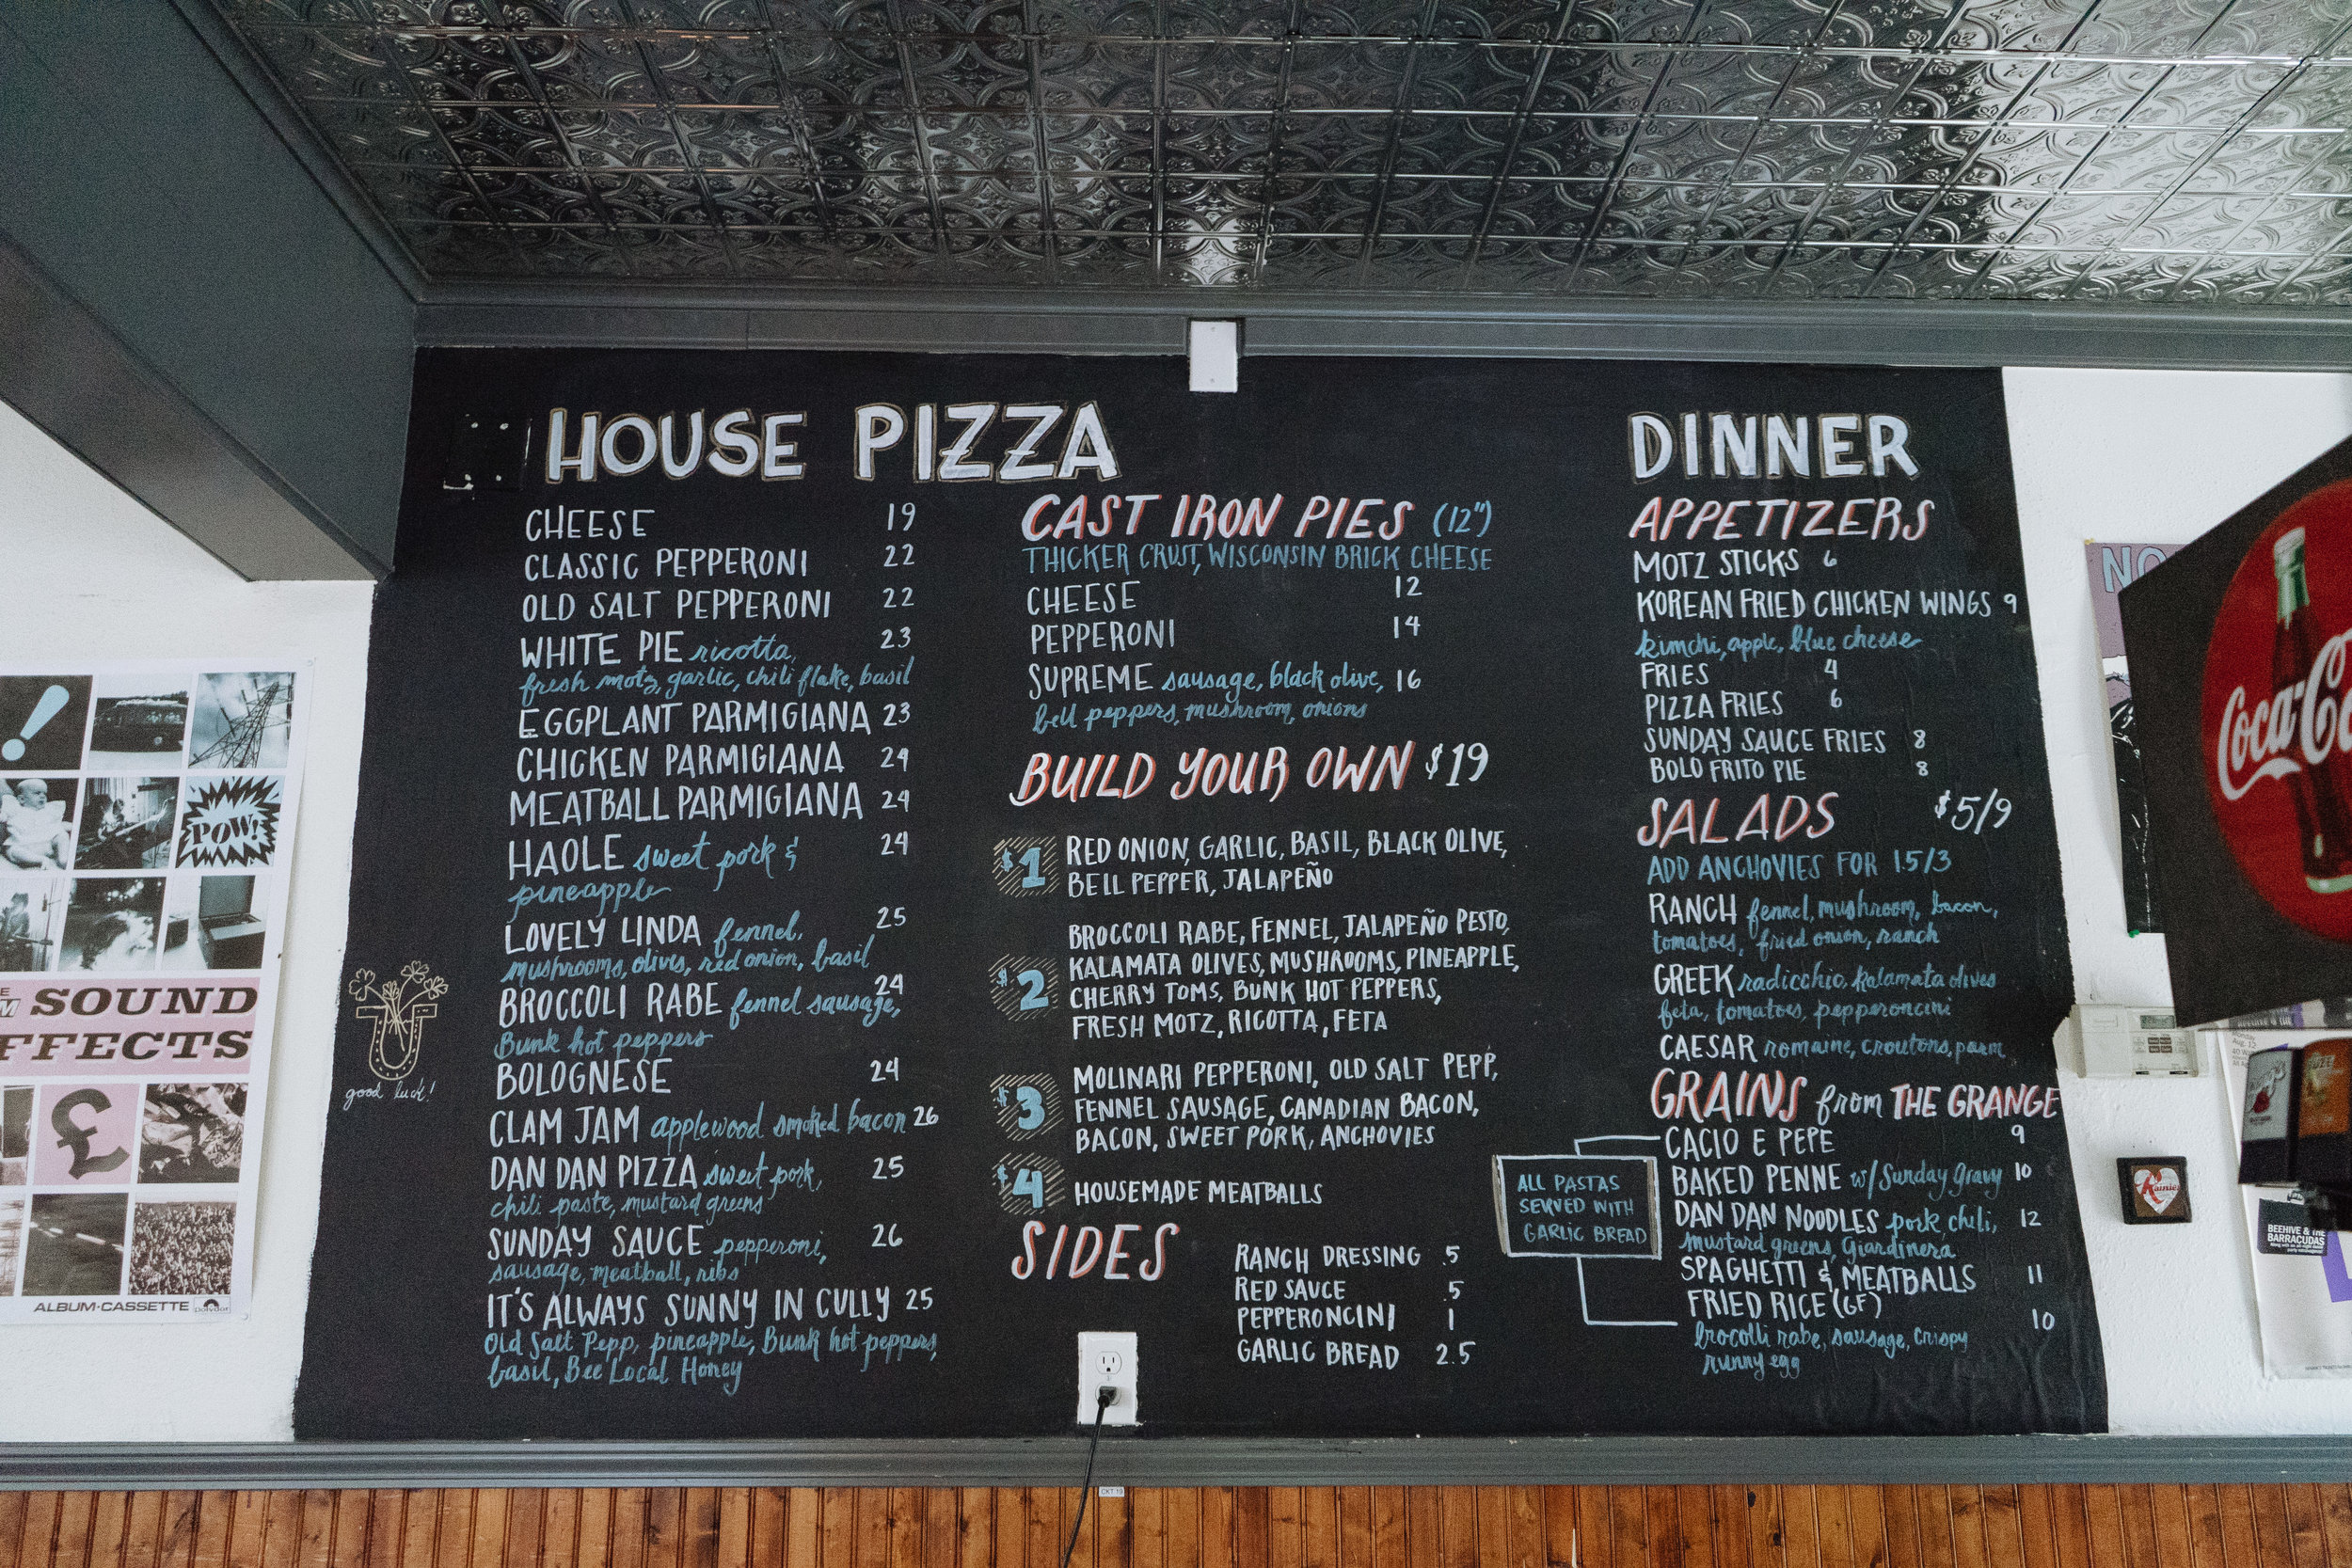 HOUSE PIZZA
CHEESE 19
CLASSIC PEPPERONI 22
OLD SALT PEPPERONI 22
WHITE PIE ricotta, 23
fresh motz, garlic, chili flake, basil
EGGPLANT PARMIGIANA 23
CHICKEN PARMIGIANA 24
MEATBALL PARMIGIANA 24
HAOLE sweet pork & 24
pineapple
LOVELY LINDA fennel, 25
mushrooms, olives, red onion, basil
BROCCOLI RABE fennel sausage, 24
Bunk hot peppers
BOLOGNESE 24
CLAM JAM applewood smoked bacon 26
DAN DAN PIZZA sweet pork, 25
chili paste, mustard greens
SUNDAY SAUCE pepperoni, 26
sausage, meatball, ribs
IT'S ALWAYS SUNNY IN CULLY 25
Old Salt Pepp, pineapple, Bunk hot peppers,
basil, Bee Local Honey
CAST IRON PIES (12")
THICKER CRUST, WISCONSIN BRICK CHEESE
CHEESE 12
PEPPERONI 14
SUPREME sausage, black olive, 16
bell peppers, mushroom, onions
BUILD YOUR OWN $19
$1 RED ONION, GARLIC, BASIL, BLACK OLIVE,
BELL PEPPER, JALAPEÑO
BROCCOLI RABE, FENNEL, JALAPEÑO PESTO,
KALAMATA OLIVES, MUSHROOMS, PINEAPPLE,
$2 CHERRY TOMS, BUNK HOT PEPPERS,
FRESH MOTZ, RICOTTA, FETA
MOLINARI PEPPERONI, OLD SALT PEPP,
$3 FENNEL SAUSAGE, CANADIAN BACON,
BACON, SWEET PORK, ANCHOVIES
$4 HOUSEMADE MEATBALLS
SIDES
RANCH DRESSING .5
RED SAUCE .5
PEPPERONCINI 1
GARLIC BREAD 2.5
DINNER
APPETIZERS
MOTZ STICKS 6
KOREAN FRIED CHICKEN WINGS 9
kimchi, apple, blue cheese
FRIES 4
PIZZA FRIES 6
SUNDAY SAUCE FRIES 8
BOLO FRITO PIE 8
SALADS $5/9
ADD ANCHOVIES FOR 1.5/3
RANCH fennel, mushroom, bacon,
tomatoes, fried onion, ranch
GREEK radicchio, kalamata olives
feta, tomatoes, pepperoncini
CAESAR romaine, croutons, parm
GRAINS from THE GRANGE
CACIO E PEPE 9
BAKED PENNE w/ Sunday gravy 10
DAN DAN NOODLES pork, chili, 12
mustard greens, Giardinera
SPAGHETTI & MEATBALLS 11
FRIED RICE (GF) 10
brocolli rabe, sausage, crispy
runny egg
ALL PASTAS
SERVED WITH
GARLIC BREAD
good luck!
POW!
SOUND
FFECTS
£
ALBUM·CASSETTE
Polydor
CKT 19
NO
Coca-Co
Rainier
BEEHIVE & THE
BARRACUDAS